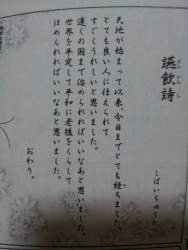 讌飲詩
しばいちゅうたつ
天地が始まって以来、今日までとても経ちました。
とても良い人に仕えられて
すごくうれしいと思いました。
遠くの国まで治められればいいなあと思いました。
世界を平定して平和に老後をくらして
ほめられればいいなあと思いました。
おわり。